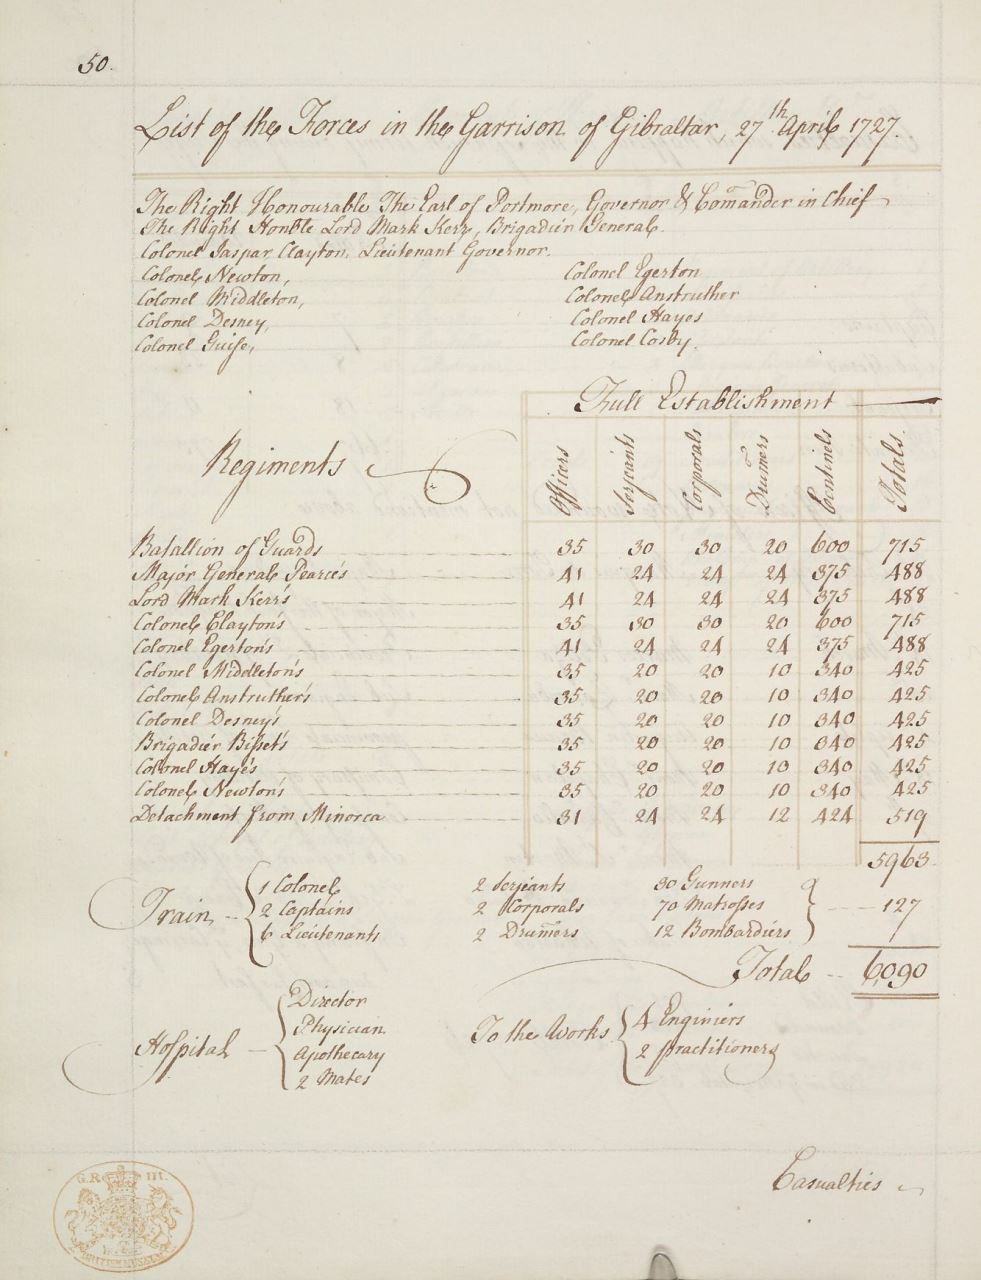 50.
List of the Forces in the Garrison of Gibraltar, 27th April 1727.
The Right Honourable The Earl of Portmore, Governor & Comander in Chief
The Right Honble Lord Mark Kerr, Brigadier General.
Colonel Jaspar Clayton, Lieutenant Governor.
Colonel Newton, Colonel Egerton
Colonel Middleton, Colonel Anstruther
Colonel Desney, Colonel Hayes
Colonel Guise, Colonel Cosby.
Full Establishment
Regiments Officers Serjeants Corporals Drumers Centinels Totals.
Batallion of Guards 35 30 30 20 600 715
Major General Pearce's 41 24 24 24 375 488
Lord Mark Kerr's 41 24 24 24 375 488
Colonel Clayton's 35 30 30 20 600 715
Colonel Egerton's 41 24 24 24 375 488
Colonel Middleton's 35 20 20 10 340 425
Colonel Anstruther's 35 20 20 10 340 425
Colonel Desney's 35 20 20 10 340 425
Brigadier Bisset's 35 20 20 10 340 425
Colonel Haye's 35 20 20 10 340 425
Colonel Newton's 35 20 20 10 340 425
Detachment from Minorca 31 24 24 12 424 519
5963
Train 1 Colonel 2 Serjeants 30 Gunners
2 Captains 2 Corporals 70 Matrosses 127
6 Lieutenants 2 Drumers 12 Bombardiers
Total 6090
Hospital Director
Physician
Apothecary
2 Mates
To the Works 4 Enginiers
2 practitioners
Casualties
G.R III.
BRITISH MUSEUM